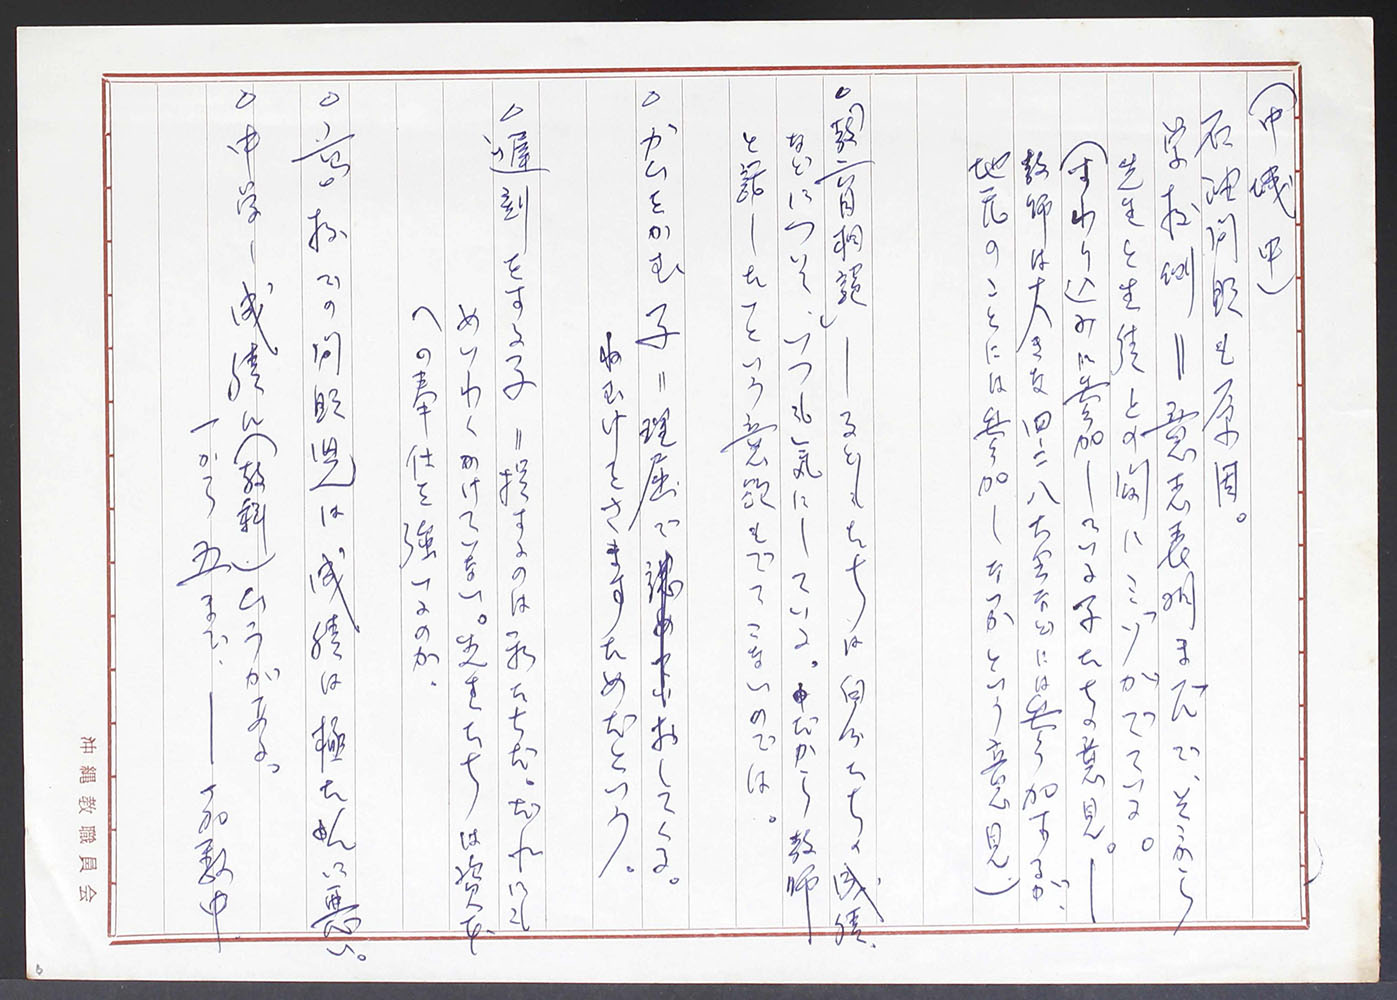 (中城中)
石油問題も原因。
学校側=意志表明まだで、そこから
先生と生徒との間にミゾがでている。
(すわり込みに参加している子たちの意見。―
教師は大きな四・二八大会などには参加するが、
地元のことには参加しないかという意見)
○「教育相談」―子どもたちは自分たちの成績、
などについて、いつも気にしている。だから教師
と話したいという意欲もでてこないのでは。
○ガムをかむ子=理屈でおしてくる。
ねむけをさますためだという。
○遅刻をする子=損するのは私たちだ。だれにも
めいわくかけていない。先生たちは資本
への奉仕を強いるのか。
○高校での問題児は成績は極たんに悪い。
○中学―成績に(教科)むらがある。
一から五まで。―
沖縄教職員会